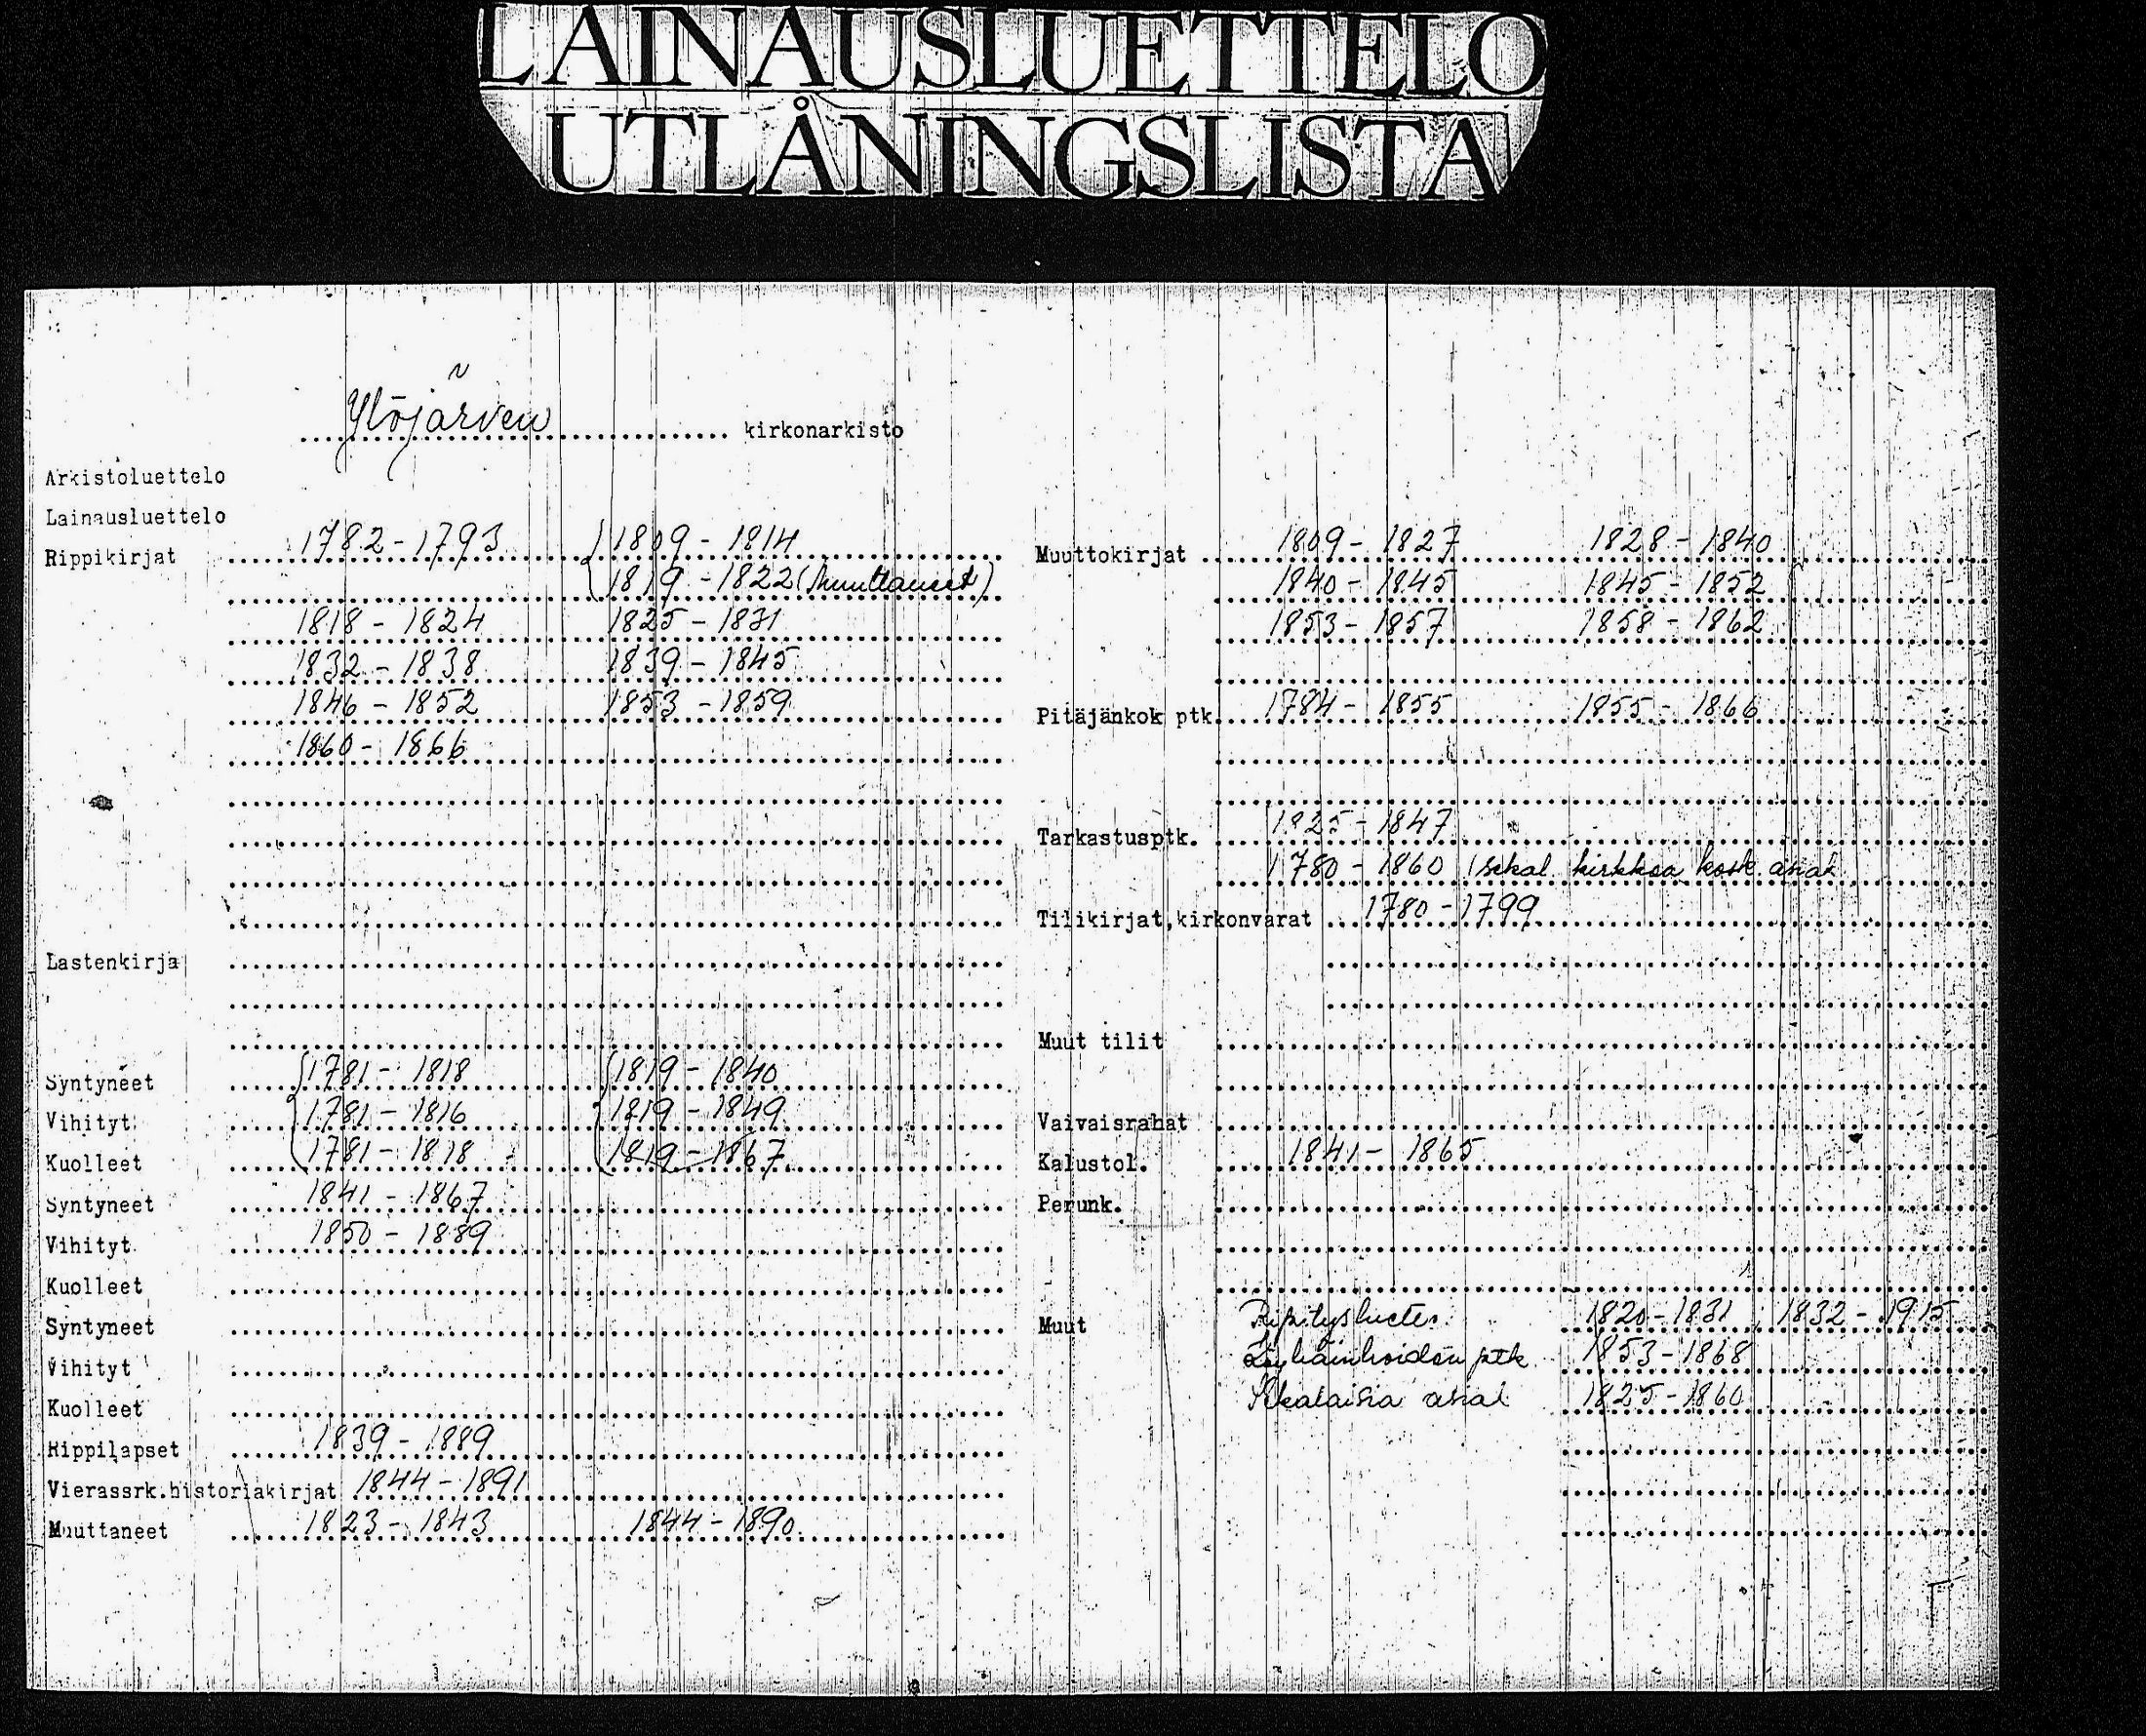 LAINAUSLUETTELO
UTLÅNINGSLISTA
Ylöjärven kirkonarkisto
Arkistoluettelo
Lainausluettelo
Rippikirjat 1782 - 1793 1809 - 1814
1819 - 1822 (muuttaneet)
1818 - 1824 1825 - 1831
1832 - 1838 1839 - 1845
1846 - 1852 1853 - 1859
1860 - 1866
Lastenkirja
Syntyneet 1781 - 1818 1819 - 1840
Vihityt 1781 - 1816 1819 - 1849
Kuolleet 1781 - 1818 1819 - 1867
Syntyneet 1841 - 1867
Vihityt 1850 - 1889
Kuolleet
Syntyneet
Vihityt
Kuolleet
Rippilapset 1839 - 1889
Vierassrk.historiakirjat 1844 - 1891
Muuttaneet 1823 - 1843 1844 - 1890
Muuttokirjat 1809 - 1827 1828 - 1840
1840 - 1845 1845 - 1852
1853 - 1857 1858 - 1862
Pitäjänkok ptk. 1784 - 1855 1855 - 1866
Tarkastusptk. 1825 - 1847
1780 - 1860 (sekal. kirkkoa kosk. asiak
Tilikirjat,kirkonvarat 1780 - 1799
Muut tilit
Vaivaisrahat
Kalustol. 1841 - 1865
Perunk.
Muut 1820 - 1831, 1832 - 1915
ptk 1853 - 1868
Sekalaisia asiak 1825 - 1860